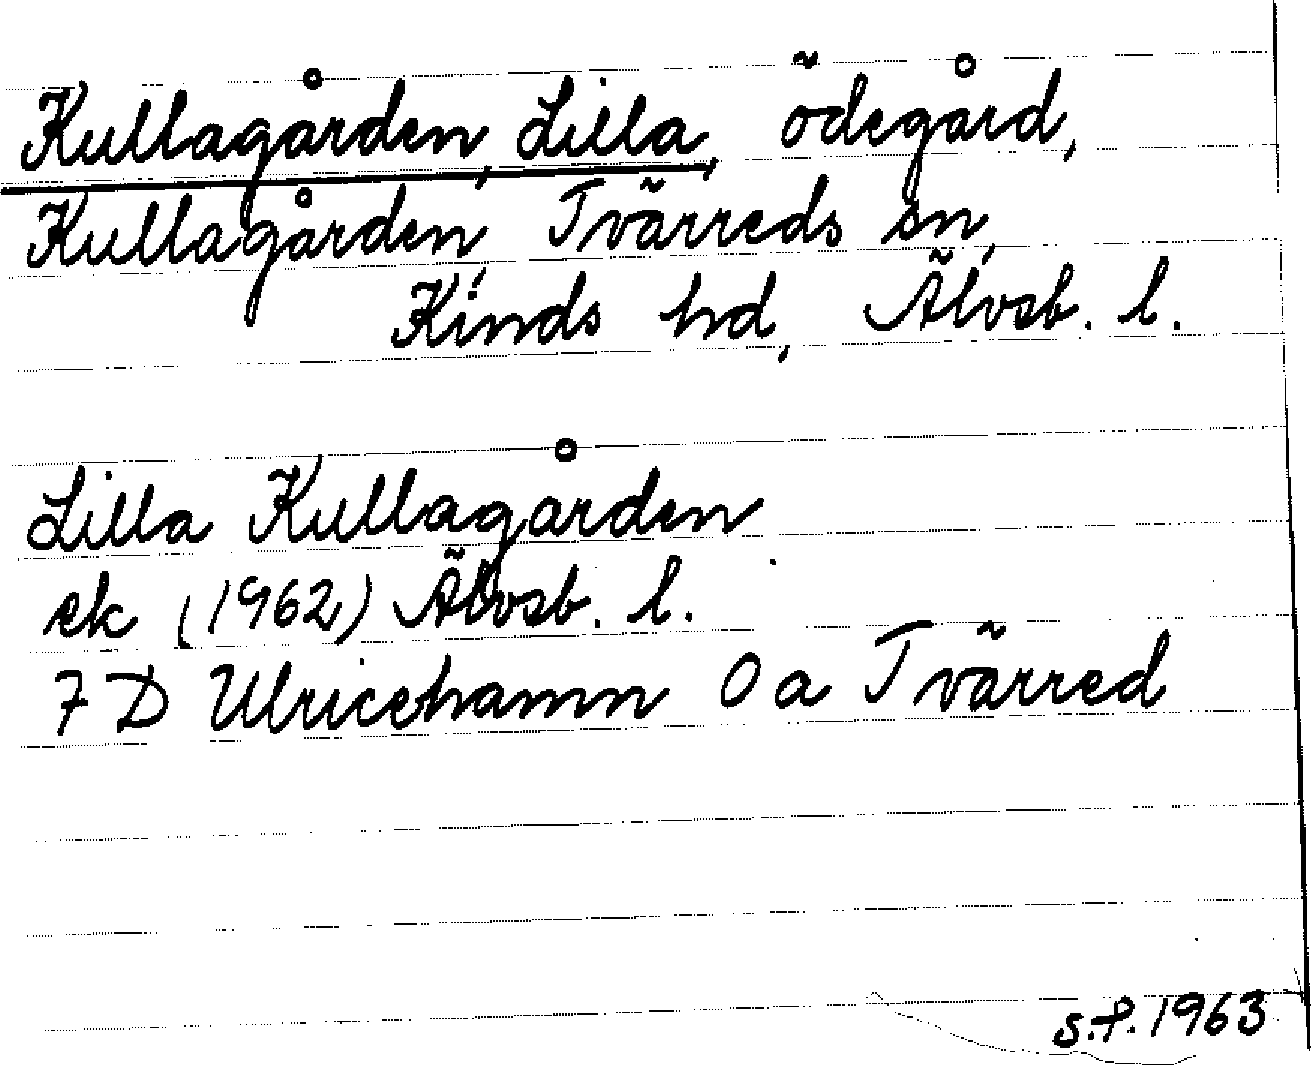 Kullagården, Lilla, ödegård,
Kullagården, Tvärreds sn,
Kinds hd, Älvsb. l.
Lilla Kullagården
ek (1962) Älvsb. l.
7 D Ulricehamn 0 a Tvärred
S.F. 1963